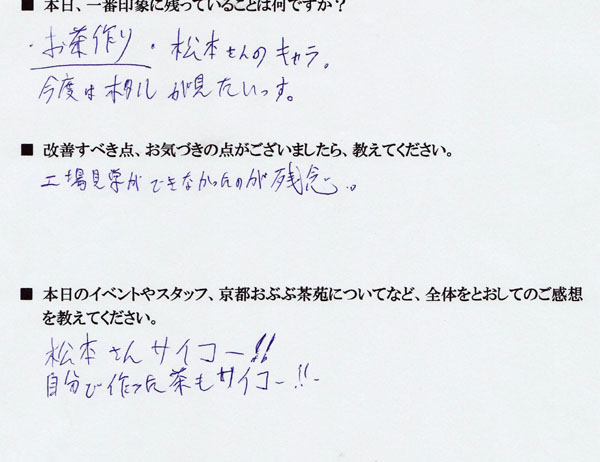 ■ 本日、一番印象に残っていることは何ですか?
・お茶作り ・松本さんのキャラ。
今度はホタルが見たいっす。
■ 改善すべき点、お気づきの点がございましたら、教えてください。
工場見学ができなかったのが残念。
■ 本日のイベントやスタッフ、京都おぶぶ茶苑についてなど、全体をとおしてのご感想
を教えてください。
松本さんサイコー!!
自分で作った茶もサイコー!!